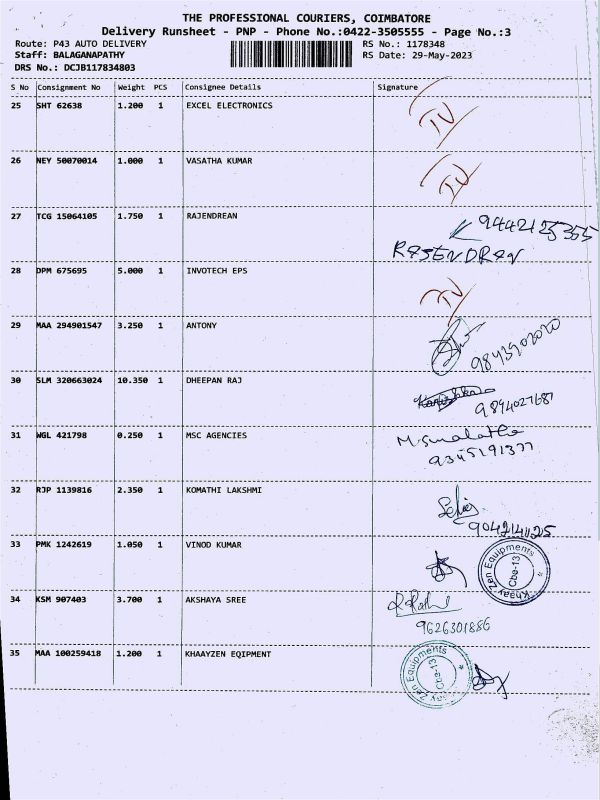 THE PROFESSIONAL COURIERS, COIMBATORE
Delivery Runsheet - PNP - Phone No.:0422-3505555 - Page No.:3
Route: P43 AUTO DELIVERY RS No.: 1178348
Staff: BALAGANAPATHY RS Date: 29-May-2023
DRS No.: DCJB117834803
S No Consignment No Weight PCS Consignee Details Signature
25 SHT 62638 1.200 1 EXCEL ELECTRONICS
26 NEY 50070014 1.000 1 VASATHA KUMAR
27 TCG 15064105 1.750 1 RAJENDREAN
9442125355
RASENDRAN
28 DPM 675695 5.000 1 INVOTECH EPS
29 MAA 294901547 3.250 1 ANTONY
9843902020
30 SLM 320663024 10.350 1 DHEEPAN RAJ
9894027687
31 WGL 421798 0.250 1 MSC AGENCIES
9345191377
32 RJP 1139816 2.350 1 KOMATHI LAKSHMI
9042141125
33 PMK 1242619 1.050 1 VINOD KUMAR
Khaay Zen Equipments
Cbe-13
34 KSM 907403 3.700 1 AKSHAYA SREE
9626301886
35 MAA 100259418 1.200 1 KHAAYZEN EQIPMENT
Khaay Zen Equipments
Cbe-13